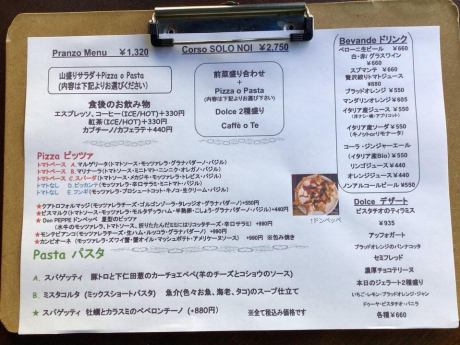 Pranzo Menu　￥1,320
山盛りサラダ+Pizza o Pasta
(内容は下記よりお選びください)
食後のお飲み物
エスプレッソ、コーヒー(ICE/HOT)+330円
紅茶(ICE/HOT)+330円
カプチーノ/カフェラテ+440円
Corso SOLO NOI　￥2,750
前菜盛り合わせ
+
Pizza o Pasta
(内容は下記よりお選び下さい)
Dolce 2種盛り
Caffè o Te
Bevande ドリンク
ペローニ生ビール　￥660
白・赤/グラスワイン
￥660
スプマンテ　￥660
贅沢絞りトマトジュース
￥880
ブラッドオレンジ　￥550
マンダリンオレンジ　￥605
イタリア産ジュース　￥550
イタリア産ソーダ　￥550
(キノットorリモナータ)
コーラ・ジンジャーエール
(イタリア産Bio)　￥550
リンゴジュース　￥440
オレンジジュース　￥440
ノンアルコールビール　￥550
Pizza ピッツァ
トマトベース　A. マルゲリータ(トマトソース・モッツァレラ・グラナパダーノ・バジル)
トマトベース　B. マリナーラ(トマトソース・ミニトマト・ニンニク・オレガノ・バジル)
トマトベース　C. スパーダ(トマトソース・モッツァレラ・
トマトなし　D. ピッカンテ(モッツァレラ・辛口サラミ・ミニトマト・バジル)
トマトなし　E. フンギ(モッツァレラ・プロシュートコット・キノコ・生クリーム・バジル)
★クアトロフォルマッジ(モッツァレラチーズ・ゴルゴンゾーラ・タレッジオ・グラナパダーノ)+550円
★ビスマルク(トマトソース・モッツァレラ・モルタデッラハム・半熟卵・こしょう・グラナパダーノ・バジル)+440円
★Don PEPPE ドンペッペ
(水牛のモッツァレラ、トマトソース、折りたたんだミミにはリコッタチーズ・辛口サラミ)　+990円
★モンテビアンコ(モッツァレラチーズ・生ハム・ルッコラ・グラナパダーノ・バジル)　+990円
★カンピオーネ(モッツァレラ・ズワイ蟹・蟹オイル・マッシュポテト・アメリケーヌソース)　+990円　※包み焼き
↑ドンペッペ
Dolce デザート
ピスタチオのティラミス
￥935
アッフォガート
ブラッドオレンジのパンナコッタ
セミフレッド
濃厚チョコテリーヌ
本日のジェラート2種盛り
いちご・レモン・ブラッドオレンジ・ジャン
ドゥーヤ・ピスタチオ・バニラ
各種￥660
Pasta パスタ
A．スパゲッティ　豚トロと下仁田葱のカーチョエペペ(羊のチーズとコショウのソース)
B．ミスタコルタ(ミックスショートパスタ)　魚介(色々お魚、海老、タコ)のスープ仕立て
★　スパゲッティ　牡蠣とカラスミのペペロンチーノ(+880円)　※全て税込み価格です